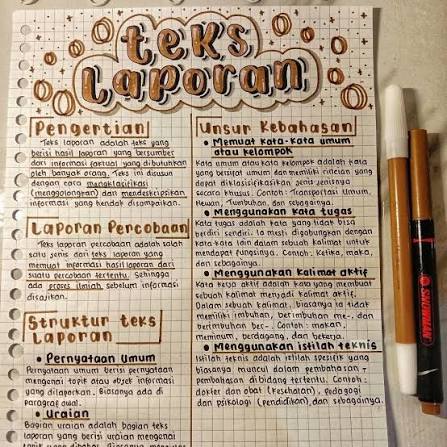 teks
laporan
Pengertian
Teks laporan adalah teks yang
berisi hasil laporan yang bersumber
dari informasi faktual yang dibutuhkan
oleh banyak orang. Teks ini disusun
dengan cara mengklasifikasi
(menggolongkan) dan mendeskripsikan
informasi yang hendak disampaikan.
Laporan Percobaan
Teks laporan percobaan adalah salah
satu jenis dari teks laporan yang
memuat informasi hasil laporan dari
suatu percobaan tertentu. Sehingga
ada proses ilmiah sebelum informasi
disajikan.
Struktur teks
Laporan
• Pernyataan Umum
Pernyataan umum berisi pernyataan
mengenai topik atau objek informasi
yang dilaporkan. Biasanya ada di
paragraf awal.
• Uraian
Bagian uraian adalah bagian teks
laporan yang berisi uraian mengenai
Unsur Kebahasaan
• Memuat kata-kata umum
atau kelompok
Kata umum atau kata kelompok adalah kata
yang bersifat umum dan memiliki rincian yang
dapat diklasifikasikan jenis-jenisnya
secara khusus. Contoh: Transportasi Umum,
Hewan, Tumbuhan, dan sebagainya.
• Menggunakan kata tugas
Kata tugas adalah kata yang tidak bisa
terdiri sendiri. Ia mesti digabungkan dengan
kata-kata lain dalam sebuah kalimat untuk
mendapat fungsinya. Contoh: Ketika, maka,
dan sebagainya.
• Menggunakan kalimat aktif
Kata kerja aktif adalah kata yang membuat
sebuah kalimat menjadi kalimat aktif.
Dalam sebuah kalimat, biasanya ia tidak
memiliki imbuhan, berimbuhan me-, dan
berimbuhan ber-. Contoh: makan,
meminum, berdagang, dan bekerja.
• Menggunakan istilah teknis
Istilah teknis adalah istilah spesifik yang
biasanya muncul dalam pembahasan-
pembahasan di bidang tertentu. Contoh:
dokter dan obat (kesehatan), pedagogi
dan psikologi (pendidikan), dan sebagainya.
SNOWMAN